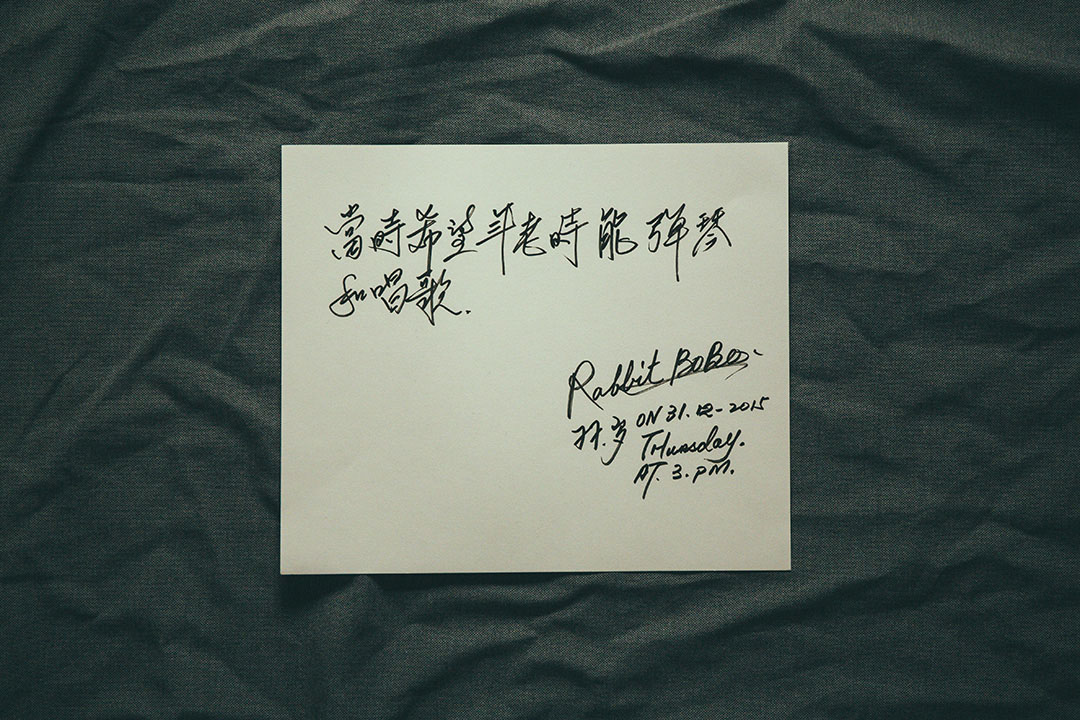 當時希望年老時能弹琴
和唱歌.
Rabbit
ON 31.12-2015
THursday.
AT. 3. PM.